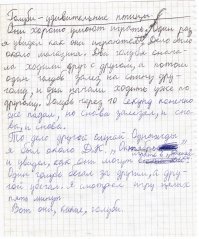 Голуби - удивительные птицы
Они хорошо умеют играть. Один раз
я увидел как они играются. Дело было
около магазина. Два голубя снача-
ла ходили друг с другом, а потом
один голубь залез на спину дру-
гому, и они начали ходить уже по
другому. Голубь через 10 секунд конечно
же падал, но снова залезал, и сно-
ва, и снова.
То дело другой случай. Однажды
я был около Д.К. "
и увидел, как они могут
Один голубь ехал за другим, а дру-
гой убегал. Я смотрел игру целых
пять минут.
Вот они, какие, голуби.